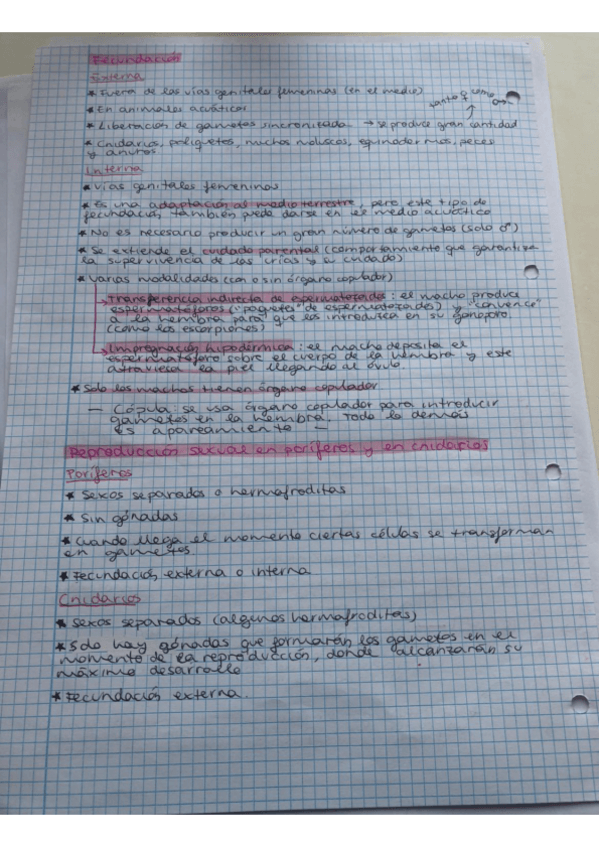 Fecundación
Externa
* Fuera de las vías genitales femeninas (en el medio)
tanto ♀ como ♂
* En animales acuáticos
* Liberación de gametos sincronizada → se produce gran cantidad
* Cnidarios, poliquetos, muchos moluscos, equinodermos, peces
y anuros
Interna
* Vías genitales femeninas
* Es una adaptación al medio terrestre, pero este tipo de
fecundació, también puede darse en el medio acuático
* No es necesario producir un gran número de gametos (solo ♂)
* Se extiende el cuidado parental (comportamiento que garantiza
la supervivencia de las crías y su cuidado)
* Varias modalidades (con o sin órgano copulador)
Transferencia indirecta de espermatozoides: el macho produce
espermatóforos ("paquetes" de espermatozoides) y "convence"
a la hembra para que los introduzca en su gonoporo
(como los escorpiones)
Impregnación hipodérmica: el macho deposita el
espermatóforo sobre el cuerpo de la hembra y este
atraviesa la piel llegando al óvulo
* Solo los machos tienen órgano copulador
— Cópula se usa órgano copulador para introducir
gametos en la hembra. Todo lo demás
es apareamiento —
Reproducción sexual en poríferos y en cnidarios
Poríferos
* Sexos separados o hermafroditas
* Sin gónadas
* Cuando llega el momento ciertas células se transforman
en gametos
* Fecundación externa o interna
Cnidarios
* Sexos separados (algunos hermafroditas)
* Solo hay gónadas que formarán los gametos en el
momento de la reproducción, donde alcanzarán su
máximo desarrollo
* Fecundación externa.